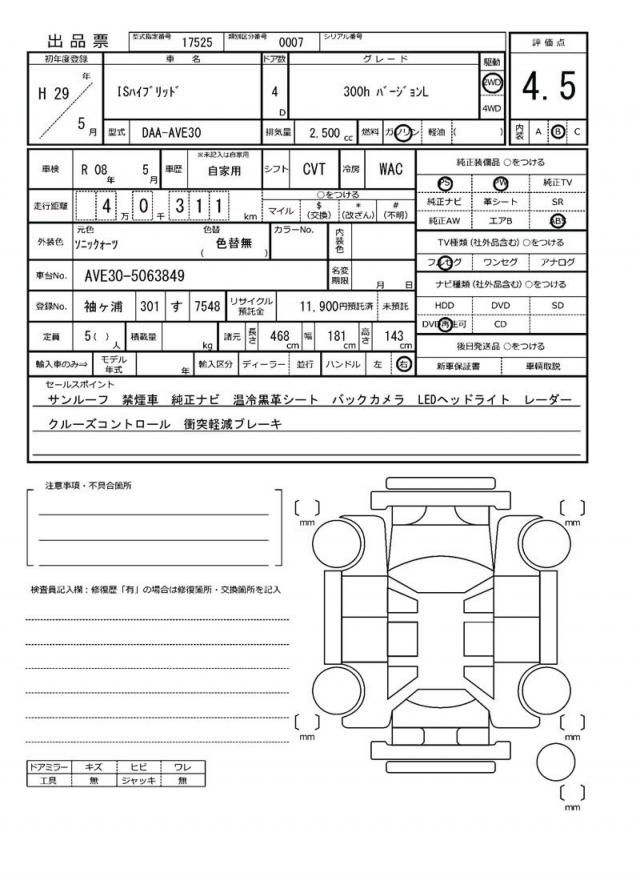 出品票 型式指定番号 17525 類別区分番号 0007 シリアル番号
初年度登録 車名 ドア数 グレード 駆動 評価点
H 29 年 5 月 ISハイブリッド 4 D 300h バージョンL 2WD 4WD 4.5
型式 DAA-AVE30 排気量 2,500 cc 燃料 ガソリン 軽油 ( ) 内装 A B C
車検 R 08 年 5 月 車歴 ※未記入は自家用 自家用 シフト CVT 冷房 WAC
走行距離 4 万 0 千 3 1 1 km ○をつける マイル $ (交換) * (改ざん) # (不明)
外装色 元色 ソニッククォーツ 色替 ( 色替無 ) カラーNo. 内装色
車台No. AVE30-5063849 名変期限 月 日
登録No. 袖ヶ浦 301 す 7548 リサイクル預託金 11,900円預託済 未預託
定員 5( ) 人 積載量 kg 諸元 長さ 468 cm 幅 181 cm 高さ 143 cm
輸入車のみ⇒ モデル年式 年 輸入区分 ディーラー 並行 ハンドル 左 右
純正装備品 ○をつける
PS PW 純正TV
純正ナビ 革シート SR
純正AW エアB ABS
TV種類(社外品含む) ○をつける
フルセグ ワンセグ アナログ
ナビ種類(社外品含む) ○をつける
HDD DVD SD
DVD再生可 CD
後日発送品 ○をつける
新車保証書 車輌取説
セールスポイント
サンルーフ 禁煙車 純正ナビ 温冷黒革シート バックカメラ LEDヘッドライト レーダー
クルーズコントロール 衝突軽減ブレーキ
注意事項・不具合箇所
検査員記入欄:修復歴「有」の場合は修復箇所・交換箇所を記入
ドアミラー キズ ヒビ ワレ
工具 無 ジャッキ 無
mm
mm
mm
mm
mm